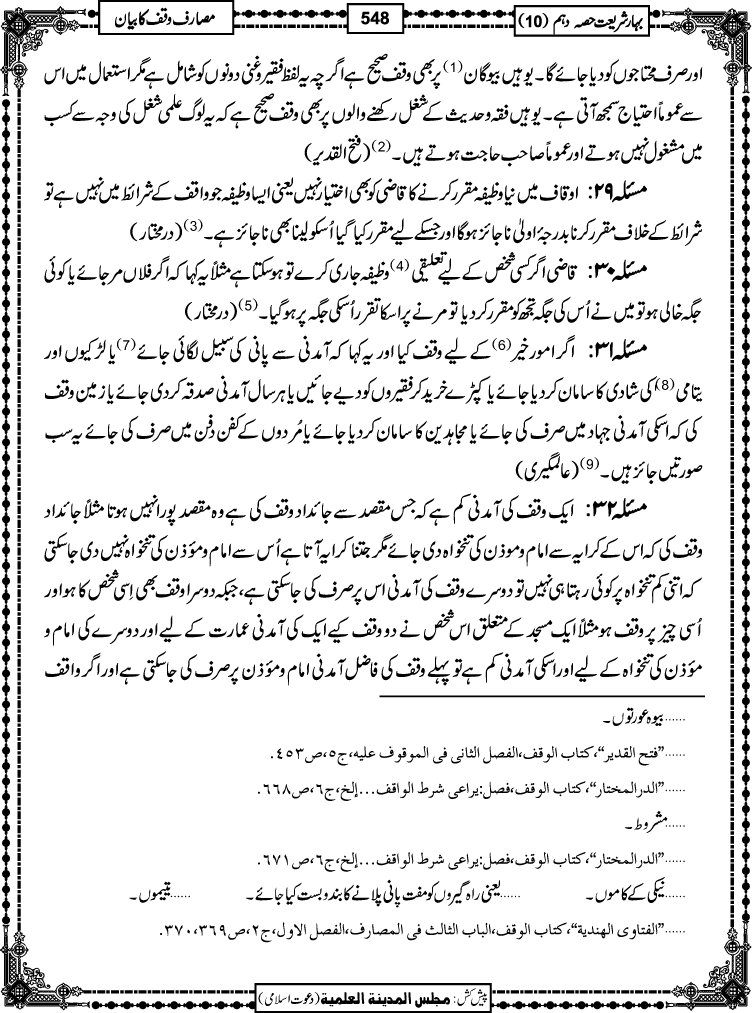 بہارشریعت حصہ دہم (10)
548
مصارف وقف کا بیان
اور صرف محتاجوں کو دیا جائے گا۔ یوہیں بیوگان(1) پر بھی وقف صحیح ہے اگرچہ یہ لفظ فقیر و غنی دونوں کو شامل ہے مگر استعمال میں اس
سے عموماً احتیاج سمجھ آتی ہے۔ یوہیں فقہ و حدیث کے شغل رکھنے والوں پر بھی وقف صحیح ہے کہ یہ لوگ علمی شغل کی وجہ سے کسب
میں مشغول نہیں ہوتے اور عموماً صاحب حاجت ہوتے ہیں۔(2) (فتح القدیر)
مسئلہ ۲۹: اوقاف میں نیا وظیفہ مقرر کرنے کا قاضی کو بھی اختیار نہیں یعنی ایسا وظیفہ جو واقف کے شرائط میں نہیں ہے تو
شرائط کے خلاف مقرر کرنا بدرجۂ اولیٰ ناجائز ہوگا اور جسکے لیے مقرر کیا گیا اُسکو لینا بھی ناجائز ہے۔(3) (درمختار)
مسئلہ ۳۰: قاضی اگر کسی شخص کے لیے تعلیقی(4) وظیفہ جاری کرے تو ہوسکتا ہے مثلاً یہ کہا کہ اگر فلاں مرجائے یا کوئی
جگہ خالی ہو تو میں نے اُس کی جگہ تجھ کو مقرر کردیا تو مرنے پر اسکا تقرر اُسکی جگہ پر ہوگیا۔(5) (درمختار)
مسئلہ ۳۱: اگر امور خیر(6) کے لیے وقف کیا اور یہ کہا کہ آمدنی سے پانی کی سبیل لگائی جائے(7) یا لڑکیوں اور
یتامی(8) کی شادی کا سامان کردیا جائے یا کپڑے خرید کر فقیروں کو دیے جائیں یا ہر سال آمدنی صدقہ کردی جائے یا زمین وقف
کی کہ اسکی آمدنی جہاد میں صرف کی جائے یا مجاہدین کا سامان کردیا جائے یا مُردوں کے کفن دفن میں صرف کی جائے یہ سب
صورتیں جائز ہیں۔(9) (عالمگیری)
مسئلہ ۳۲: ایک وقف کی آمدنی کم ہے کہ جس مقصد سے جائداد وقف کی ہے وہ مقصد پورا نہیں ہوتا مثلاً جائداد
وقف کی کہ اس کے کرایہ سے امام و موذن کی تنخواہ دی جائے مگر جتنا کرایہ آتا ہے اُس سے امام و مؤذن کی تنخواہ نہیں دی جاسکتی
کہ اتنی کم تنخواہ پر کوئی رہتا ہی نہیں تو دوسرے وقف کی آمدنی اس پر صرف کی جاسکتی ہے، جبکہ دوسرا وقف بھی اِسی شخص کا ہو اور
اُسی چیز پر وقف ہو مثلاً ایک مسجد کے متعلق اس شخص نے دو وقف کیے ایک کی آمدنی عمارت کے لیے اور دوسرے کی امام و
مؤذن کی تنخواہ کے لیے اور اسکی آمدنی کم ہے تو پہلے وقف کی فاضل آمدنی امام و مؤذن پر صرف کی جاسکتی ہے اور اگر واقف
......بیوہ عورتوں۔
......”فتح القدیر“،کتاب الوقف،الفصل الثانی فی الموقوف علیہ،ج٥،ص٤٥٣.
......”الدرالمختار“،کتاب الوقف،فصل:یراعی شرط الواقف...إلخ،ج٦،ص٦٦٨.
......مشروط۔
......”الدرالمختار“،کتاب الوقف،فصل:یراعی شرط الواقف...إلخ،ج٦،ص٦٧١.
......نیکی کے کاموں۔ ......یعنی راہ گیروں کو مفت پانی پلانے کا بندوبست کیا جائے۔ ......یتیموں۔
......”الفتاوی الھندیة“،کتاب الوقف،الباب الثالث فی المصارف،الفصل الاول،ج٢،ص٣٦٩،٣٧٠.
پیش کش: مجلس المدینة العلمیة (دعوت اسلامی)